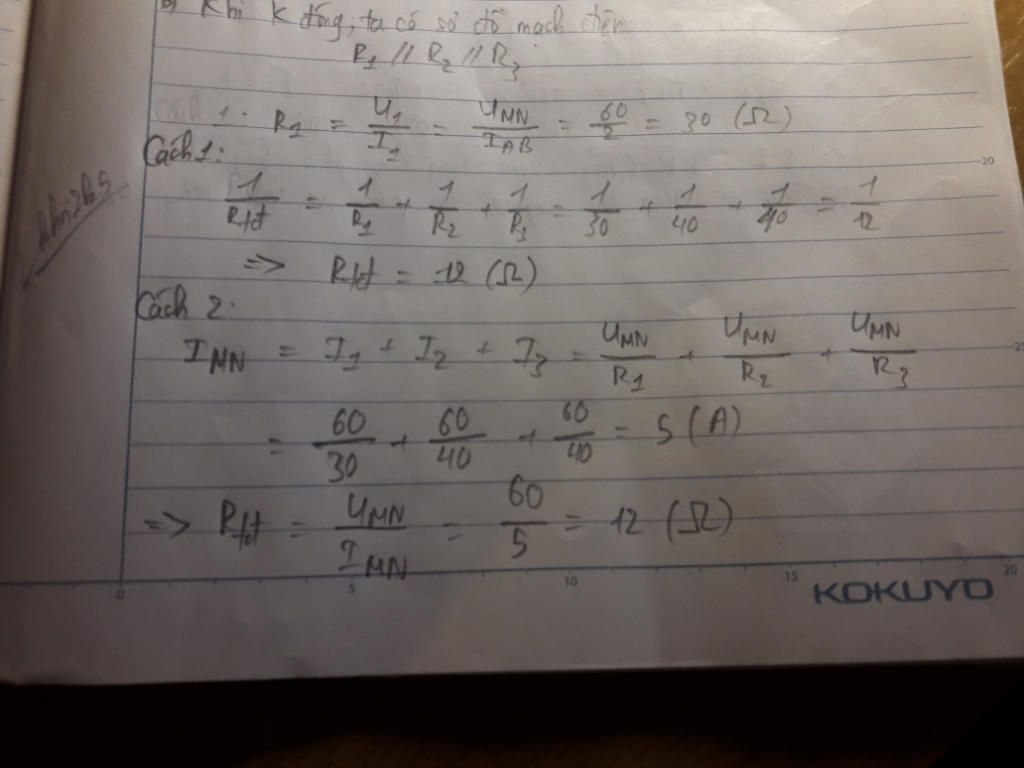 Khi K đóng, ta có sơ đồ mạch điện
R1 // R2 // R3
R1 = U1/I1 = UMN/IAB = 60/2 = 30 (Ω)
Cách 1:
1/Rtđ = 1/R1 + 1/R2 + 1/R3 = 1/30 + 1/40 + 1/40 = 1/12
=> Rtđ = 12 (Ω)
Cách 2:
IMN = I1 + I2 + I3 = UMN/R1 + UMN/R2 + UMN/R3
= 60/30 + 60/40 + 60/40 = 5 (A)
=> Rtđ = UMN/IMN = 60/5 = 12 (Ω)
0 5 10 15 20
KOKUYO
20